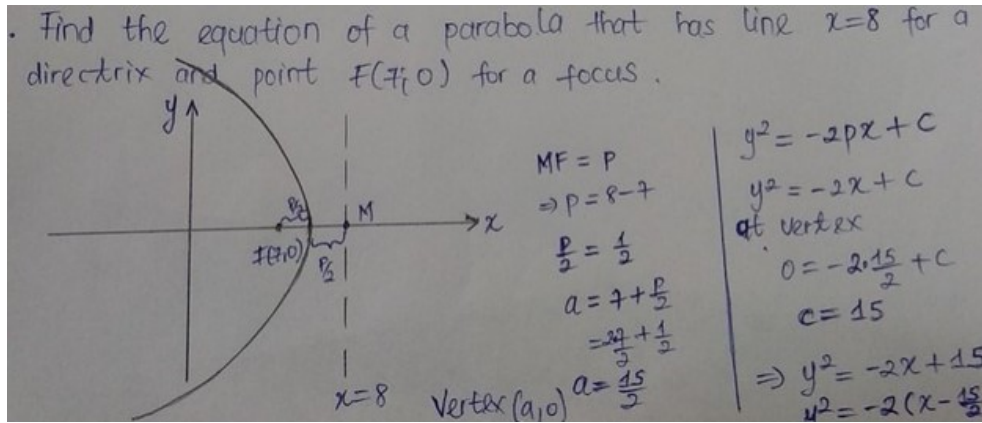 . Find the equation of a parabola that has line x=8 for a
directrix and point F(7;0) for a focus.
y
P/2
M
x
F(7;0)
P/2
x=8
MF = P
⇒ P = 8-7
P/2 = 1/2
a = 7 + P/2
a = 15/2
Vertex (a,0)
y² = -2px + C
y² = -2x + C
at vertex
0 = -2·15/2 + C
c = 15
⇒ y² = -2x + 15
y² = -2(x - 15/2